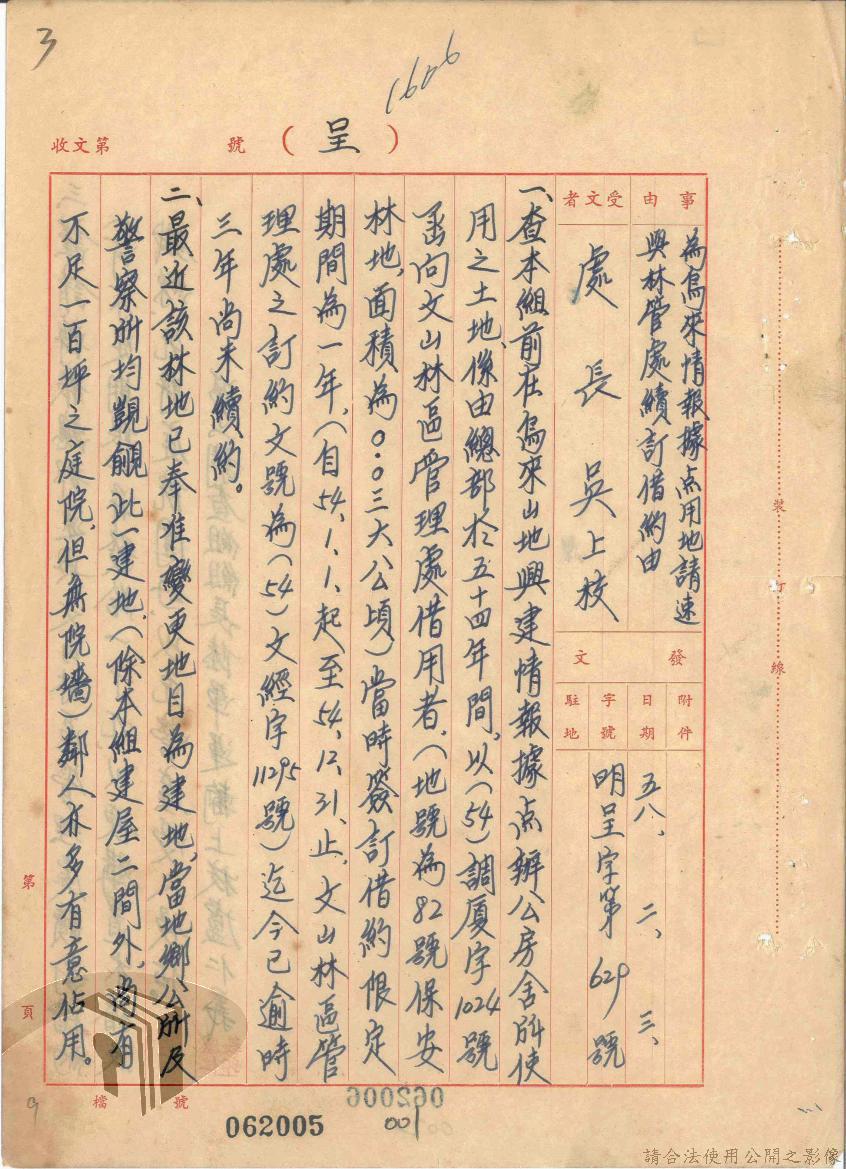 3
1606
收文第 號
（呈）
事由
為烏來情報據点用地請速
與林管處續訂借約由
受文者
處長 吳上校
發文
附件
日期
五八、二、三、
字號
明呈字第629號
駐地
一、查本組前在烏來山地興建情報據点辦公房舍所使
用之土地、係由總部於五十四年間，以(54)調厦字1024號
函向文山林區管理處借用者，(地號為82號保安
林地，面積為０.０三大公頃)當時簽訂借約限定
期間為一年，(自54.1.1.起至54.12.31.止，文山林區管
理處之訂約文號為(54)文經字11295號)迄今已逾時
三年尚未續約。
二、最近該林地已奉准變更地目為建地，當地鄉公所及
警察所均覬覦此一建地，(除本組建屋二間外，尚有
不足一百坪之庭院，但無院墻)鄰人亦多有意佔用。
裝
訂
線
第
頁
檔 號
062005
062006
001
請合法使用公開之影像